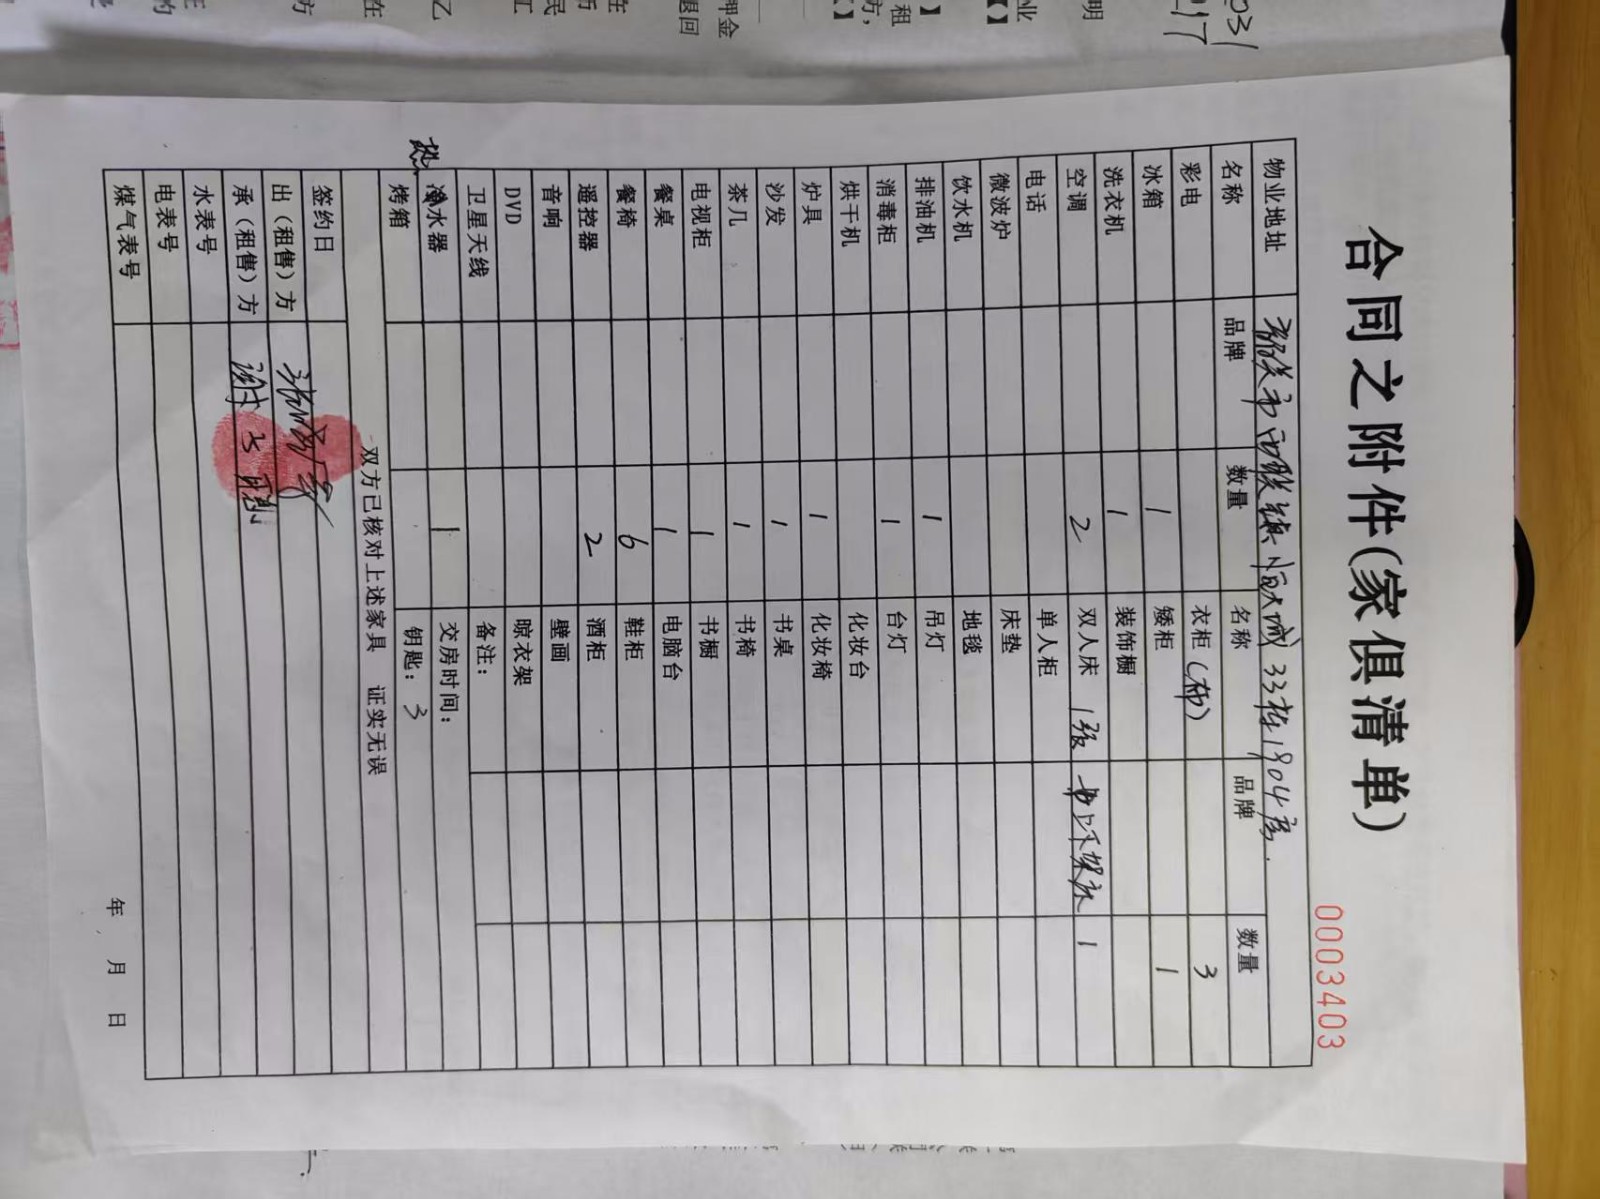 合同之附件(家俱清单)
0003403
物业地址 韶关市西联镇恒大城33栋1904房.
名称 品牌 数量 名称 品牌 数量
彩电 衣柜(布) 3
冰箱 1 矮柜 1
洗衣机 1 装饰橱
空调 2 双人床 1张 上下架床 1
电话 单人柜
微波炉 床垫
饮水机 地毯
排油机 1 吊灯
消毒柜 1 台灯
烘干机 化妆台
炉具 1 化妆椅
沙发 1 书桌
茶几 1 书椅
电视柜 1 书橱
餐桌 1 电脑台
餐椅 6 鞋柜
遥控器 2 酒柜
音响 壁画
DVD 晾衣架
卫星天线 备注:
热水器 1 交房时间:
烤箱 钥匙: 3
双方已核对上述家具 证实无误
签约日
出(租售)方
承(租售)方 谢
水表号
电表号
煤气表号
年 月 日